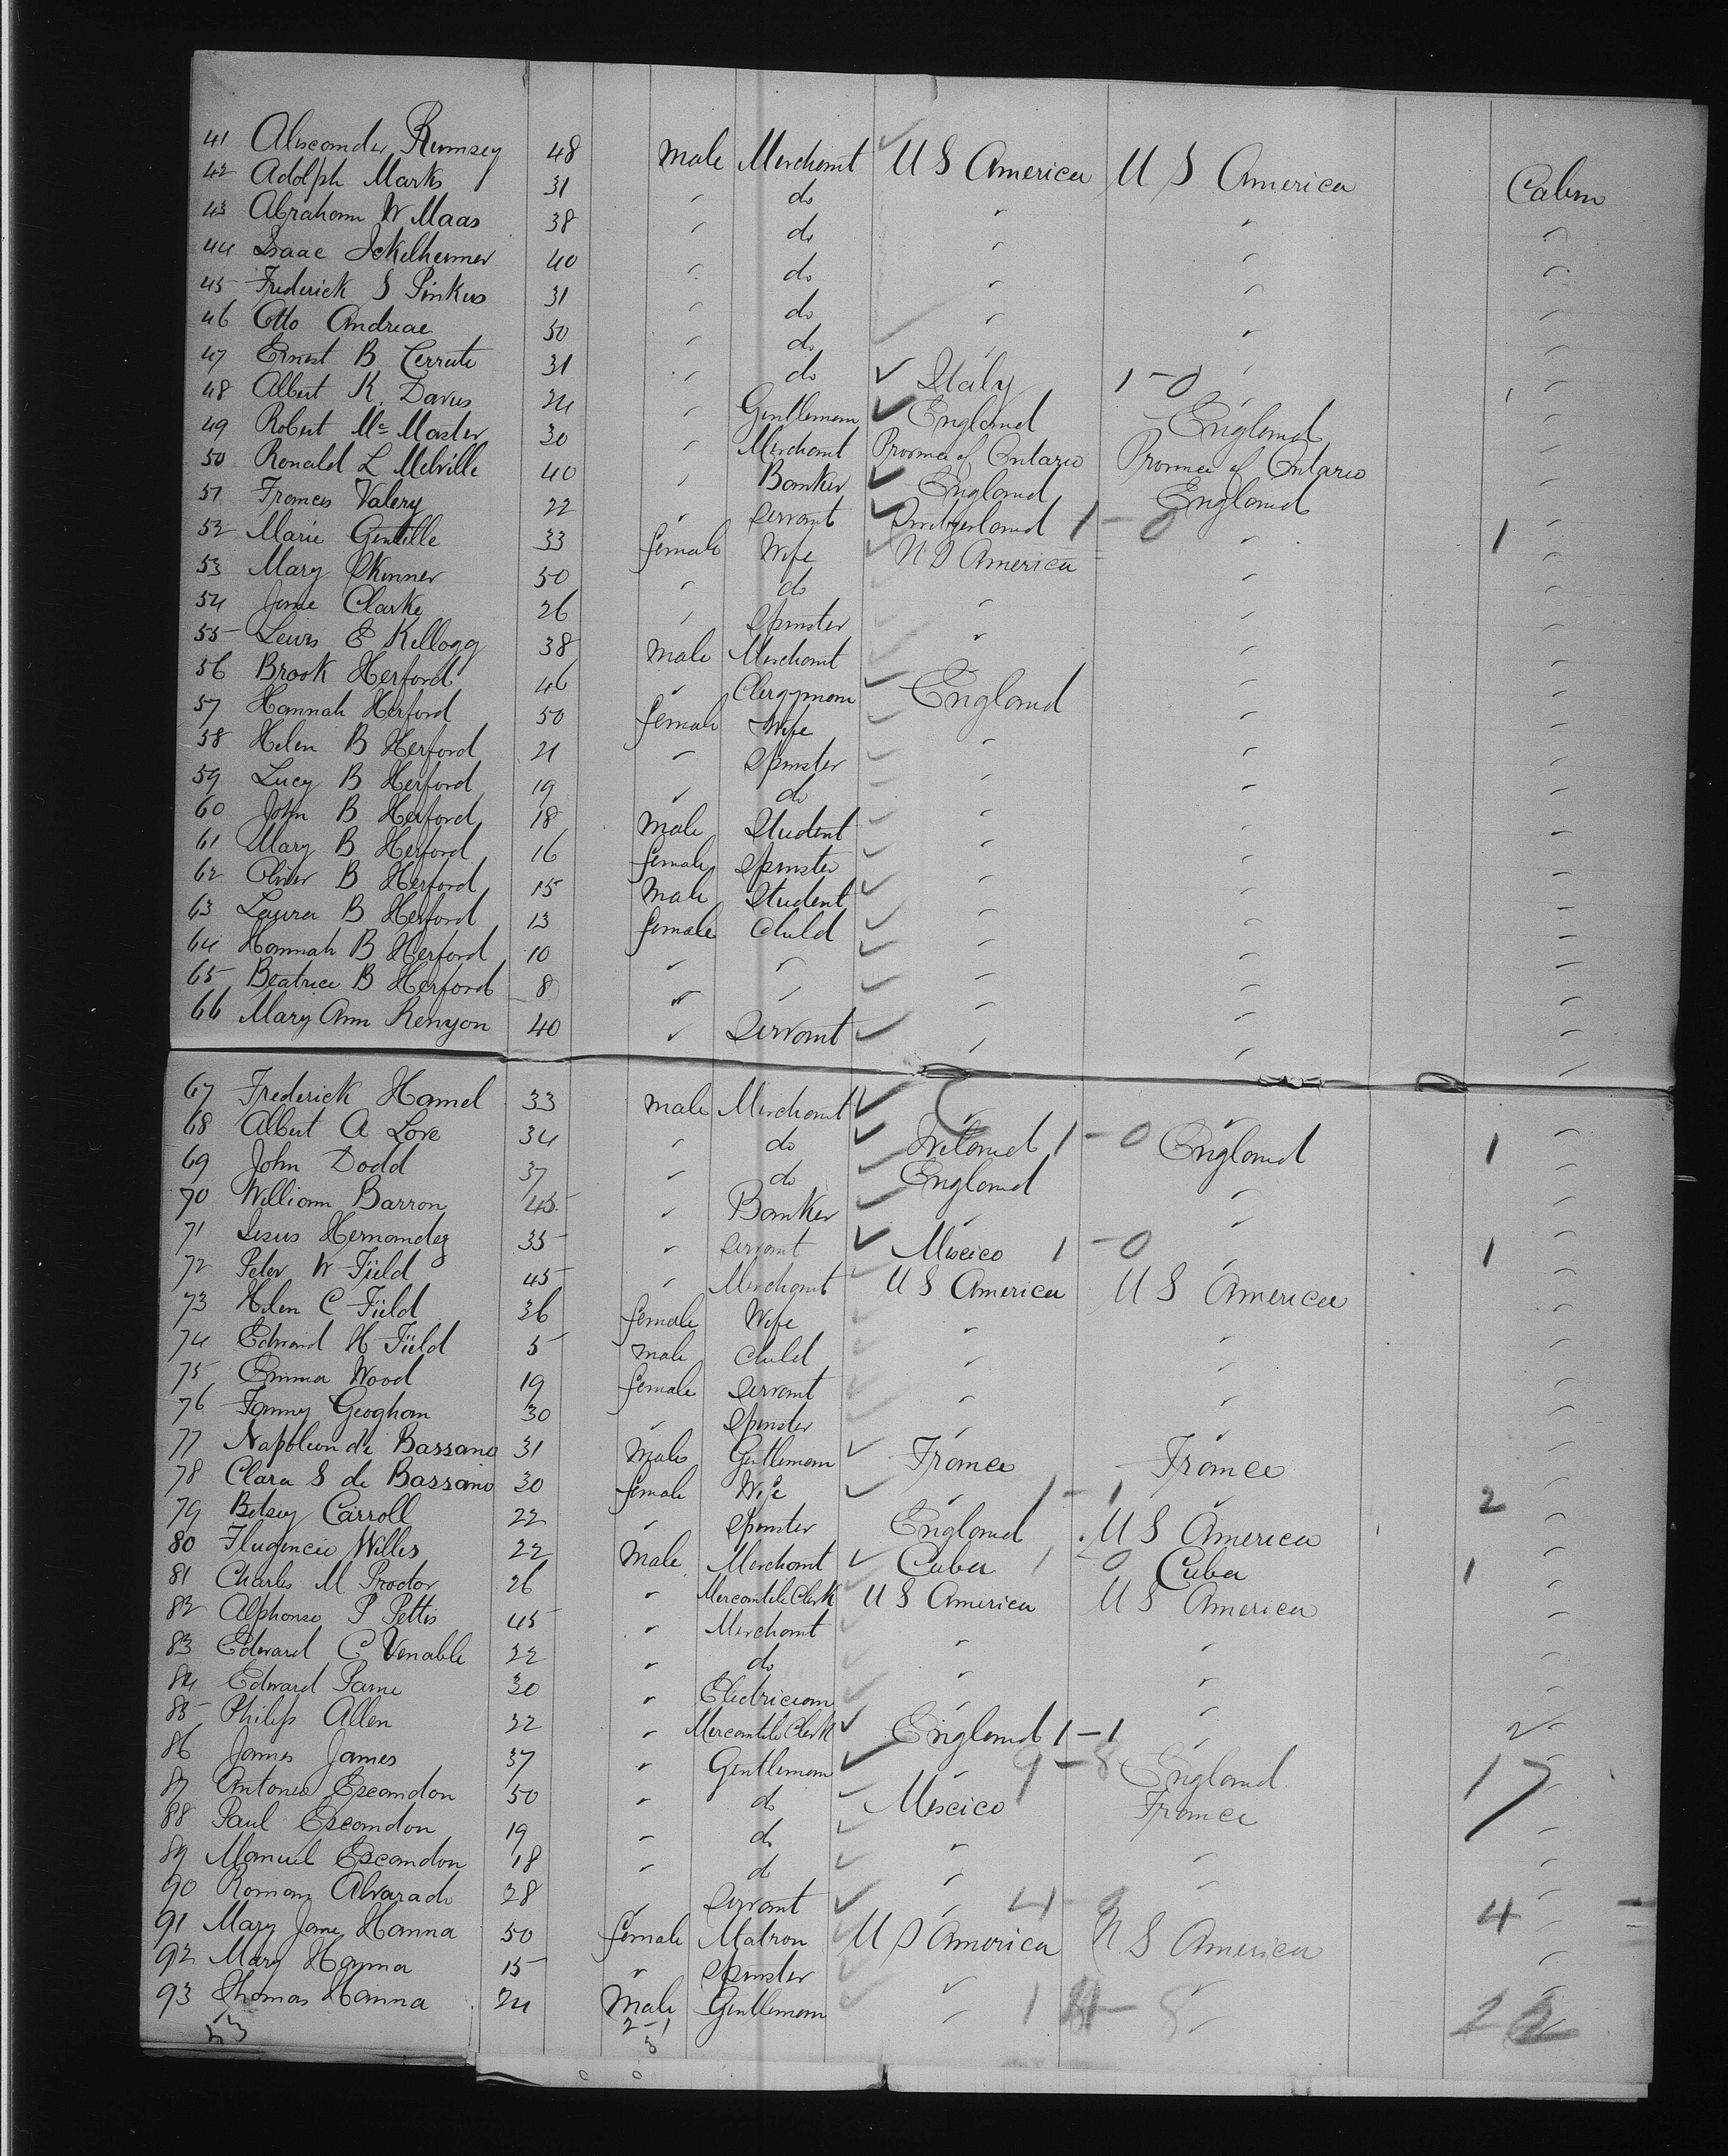 41 Alexander Rumsey 48 Male Merchant U S America U S America Cabin
42 Adolph Marks 31 " do " " "
43 Abraham W Maas 38 " do " " "
44 Isaac Ickelheimer 40 " do " " "
45 Frederick S Pinkus 31 " do " " "
46 Otto Andreae 50 " do " " "
47 Ernest B Cerruti 31 " do Italy 1-0 " "
48 Albert K. Davis 24 " Gentleman England England "
49 Robert Mc Master 30 " Merchant Province of Ontario Province of Ontario "
50 Ronald L Melville 40 " Banker England England "
51 Frances Valery 22 " Servant Switzerland 1-0 " 1 "
52 Marie Gentille 33 female Wife U S America " "
53 Mary Skinner 50 " do " " "
54 Jane Clarke 26 " Spinster " " "
55 Lewis E Kellogg 38 Male Merchant " "
56 Brook Herford 46 " Clergyman England " "
57 Hannah Herford 50 female Wife " " "
58 Helen B Herford 21 " Spinster " " "
59 Lucy B Herford 19 " do " " "
60 John B Herford 18 Male Student " " "
61 Mary B Herford 16 female Spinster " " "
62 Oliver B Herford 15 Male Student " " "
63 Laura B Herford 13 female Child " " "
64 Hannah B Herford 10 " " " " "
65 Beatrice B Herford 8 " " " " "
66 Mary Ann Kenyon 40 " Servant " " "
67 Frederick Hamel 33 Male Merchant " " "
68 Albert A Love 34 " do Ireland 1-0 England 1 "
69 John Dodd 37 " do England " "
70 William Barron 45 " Banker " " "
71 Jesus Hernandez 35 " Servant Mexico 1-0 " 1 "
72 Peter W Field 45 " Merchant U S America U S America "
73 Helen C Field 36 female Wife " " "
74 Edward H Field 5 Male Child " " "
75 Emma Wood 19 female Servant " " "
76 Fanny Geoghan 30 " Spinster " " "
77 Napoleon de Bassano 31 Male Gentleman France France "
78 Clara S de Bassano 30 female Wife " 1-1 " 2 "
79 Betsey Carroll 22 " Spinster England U S America "
80 Flugencio Willis 22 Male Merchant Cuba 1-0 Cuba 1 "
81 Charles M Proctor 26 " Mercantile Clerk U S America U S America "
82 Alphonso P Pettis 45 " Merchant " " "
83 Edward C Venable 22 " do " " "
84 Edward Paine 30 " Electrician " " "
85 Philip Allen 22 " Mercantile Clerk England 1-1 " 2 "
86 James James 37 " Gentleman " 9-8 England 17 "
87 Antonio Escandon 50 " do Mexico France "
88 Paul Escandon 19 " do " " "
89 Manuel Escandon 18 " do " " "
90 Roman Alvarado 28 " Servant " 4 " 4 "
91 Mary Jane Hanna 50 female Matron U S America U S America "
92 Mary Hanna 15 " Spinster " " "
93 Thomas Hanna 24 Male Gentleman " "
53 2-1
3